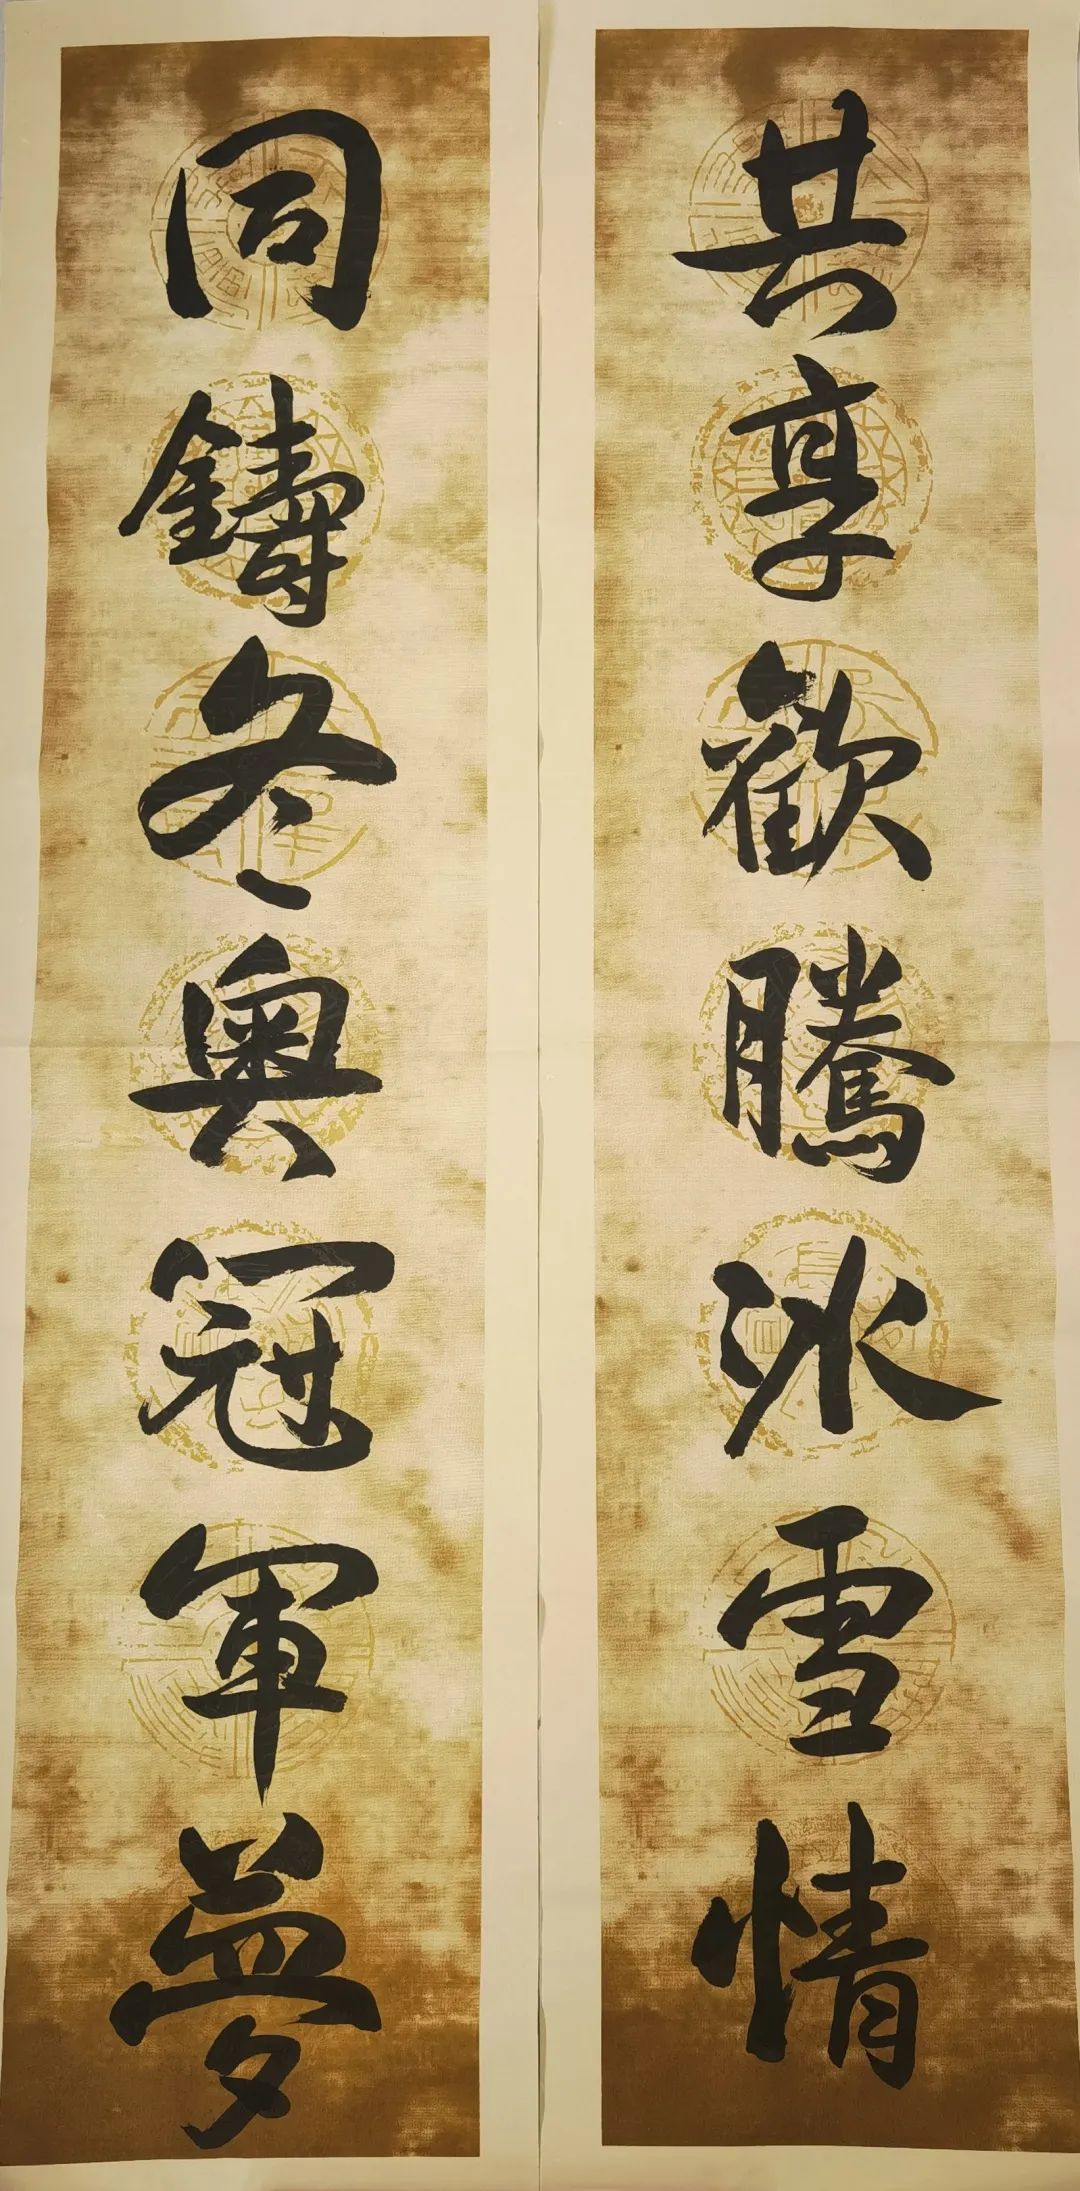 共享歡騰冰雪情
同鑄冬奧冠軍夢